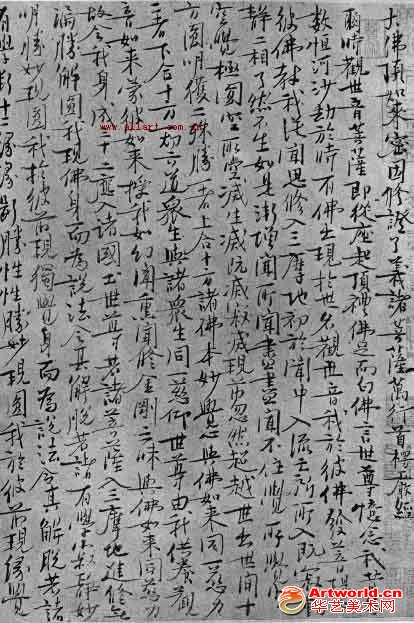 大佛頂如來密因修證了義諸菩薩萬行首楞嚴經
爾時觀世音菩薩即從座起頂禮佛足而白佛言世尊憶念我昔無
數恒河沙劫於時有佛出現於世名觀世音我於彼佛發菩提心
彼佛教我從聞思修入三摩地初於聞中入流亡所所入既寂動
靜二相了然不生如是漸增聞所聞盡盡聞不住覺所覺空
空覺極圓空所空滅生滅既滅寂滅現前忽然超越世出世間十
方圓明獲二殊勝一者上合十方諸佛本妙覺心與佛如來同一慈力
二者下合十方一切六道眾生與諸眾生同一悲仰世尊由我供養觀
音如來蒙彼如來授我如幻聞熏聞修金剛三昧與佛如來同慈力
故令我身成三十二應入諸國土世尊若諸菩薩入三摩地進修無
漏勝解圓我現佛身而為說法令其解脫若諸有學寂靜妙
明勝妙現圓我於彼前現獨覺身而為說法令其解脫若諸
有學斷十二緣緣斷勝性性勝妙現圓我於彼前現緣覺
www.allart.com.cn
sina
artworld.cn
华艺美术网